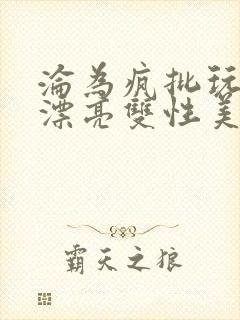 淪為瘋批玩
漂亮雙性美
霸天之狼